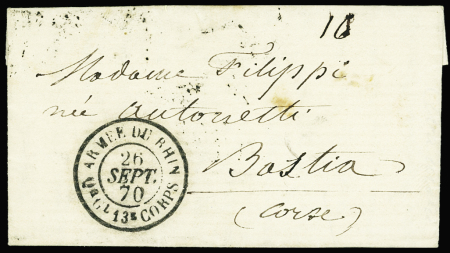 16
Madame Filippi
née Antonetti
Bastia
(Corse)
ARMÉE DU RHIN
26
SEPT.
70
Qer Gl 13E CORPS